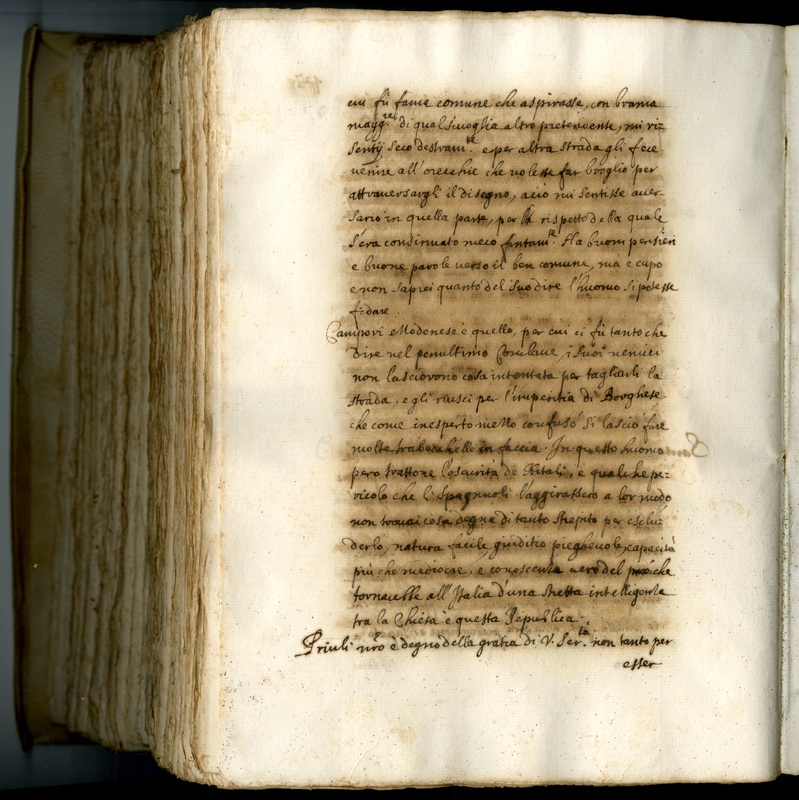 cui fù fama comune che aspirasse, con brama
magg.re di qualsivoglia altro pretendente, mi ri-
sentÿ seco destram.te e per altra strada gli fece
venire all'orecchie che volesse far broglio per
attraversargli il disegno, acio mi sentisse aver-
sario in quella parte, per la rispetto della quale
s'era consirvato meco Ha buoni pensieri
e buone parole verso il ben comune, ma e cupo
e non saprei quanto del suo dire l'huomo si potesse
fidare.
Campori Modenese è quello, per cui ci fù tanto che
dire nel penultimo Conclave, i suoi nemici
non lasciorono cosa intentata per tagliarli la
strada, e gli riuscì per l'imperitia di Borghese
che come inesperto mezzo confuso si lasciò fare
molte in faccia. In questo huomo
però trattone l'oscurità de Natali, e qualche pe-
ricolo che li Spagnuoli l'aggirassero a lor modo
non trovai cosa degna di tanto strepito per esclu-
derlo, natura facile, giuditio pieghevole, capacità
più che mediocre, e conoscenza vero del prò che
tornarebbe all'Italia d'una stretta intelligenza
tra la Chiesa e questa Republica.
Priuli nro è degno della gratia di V. Ser.tà non tanto per
esser